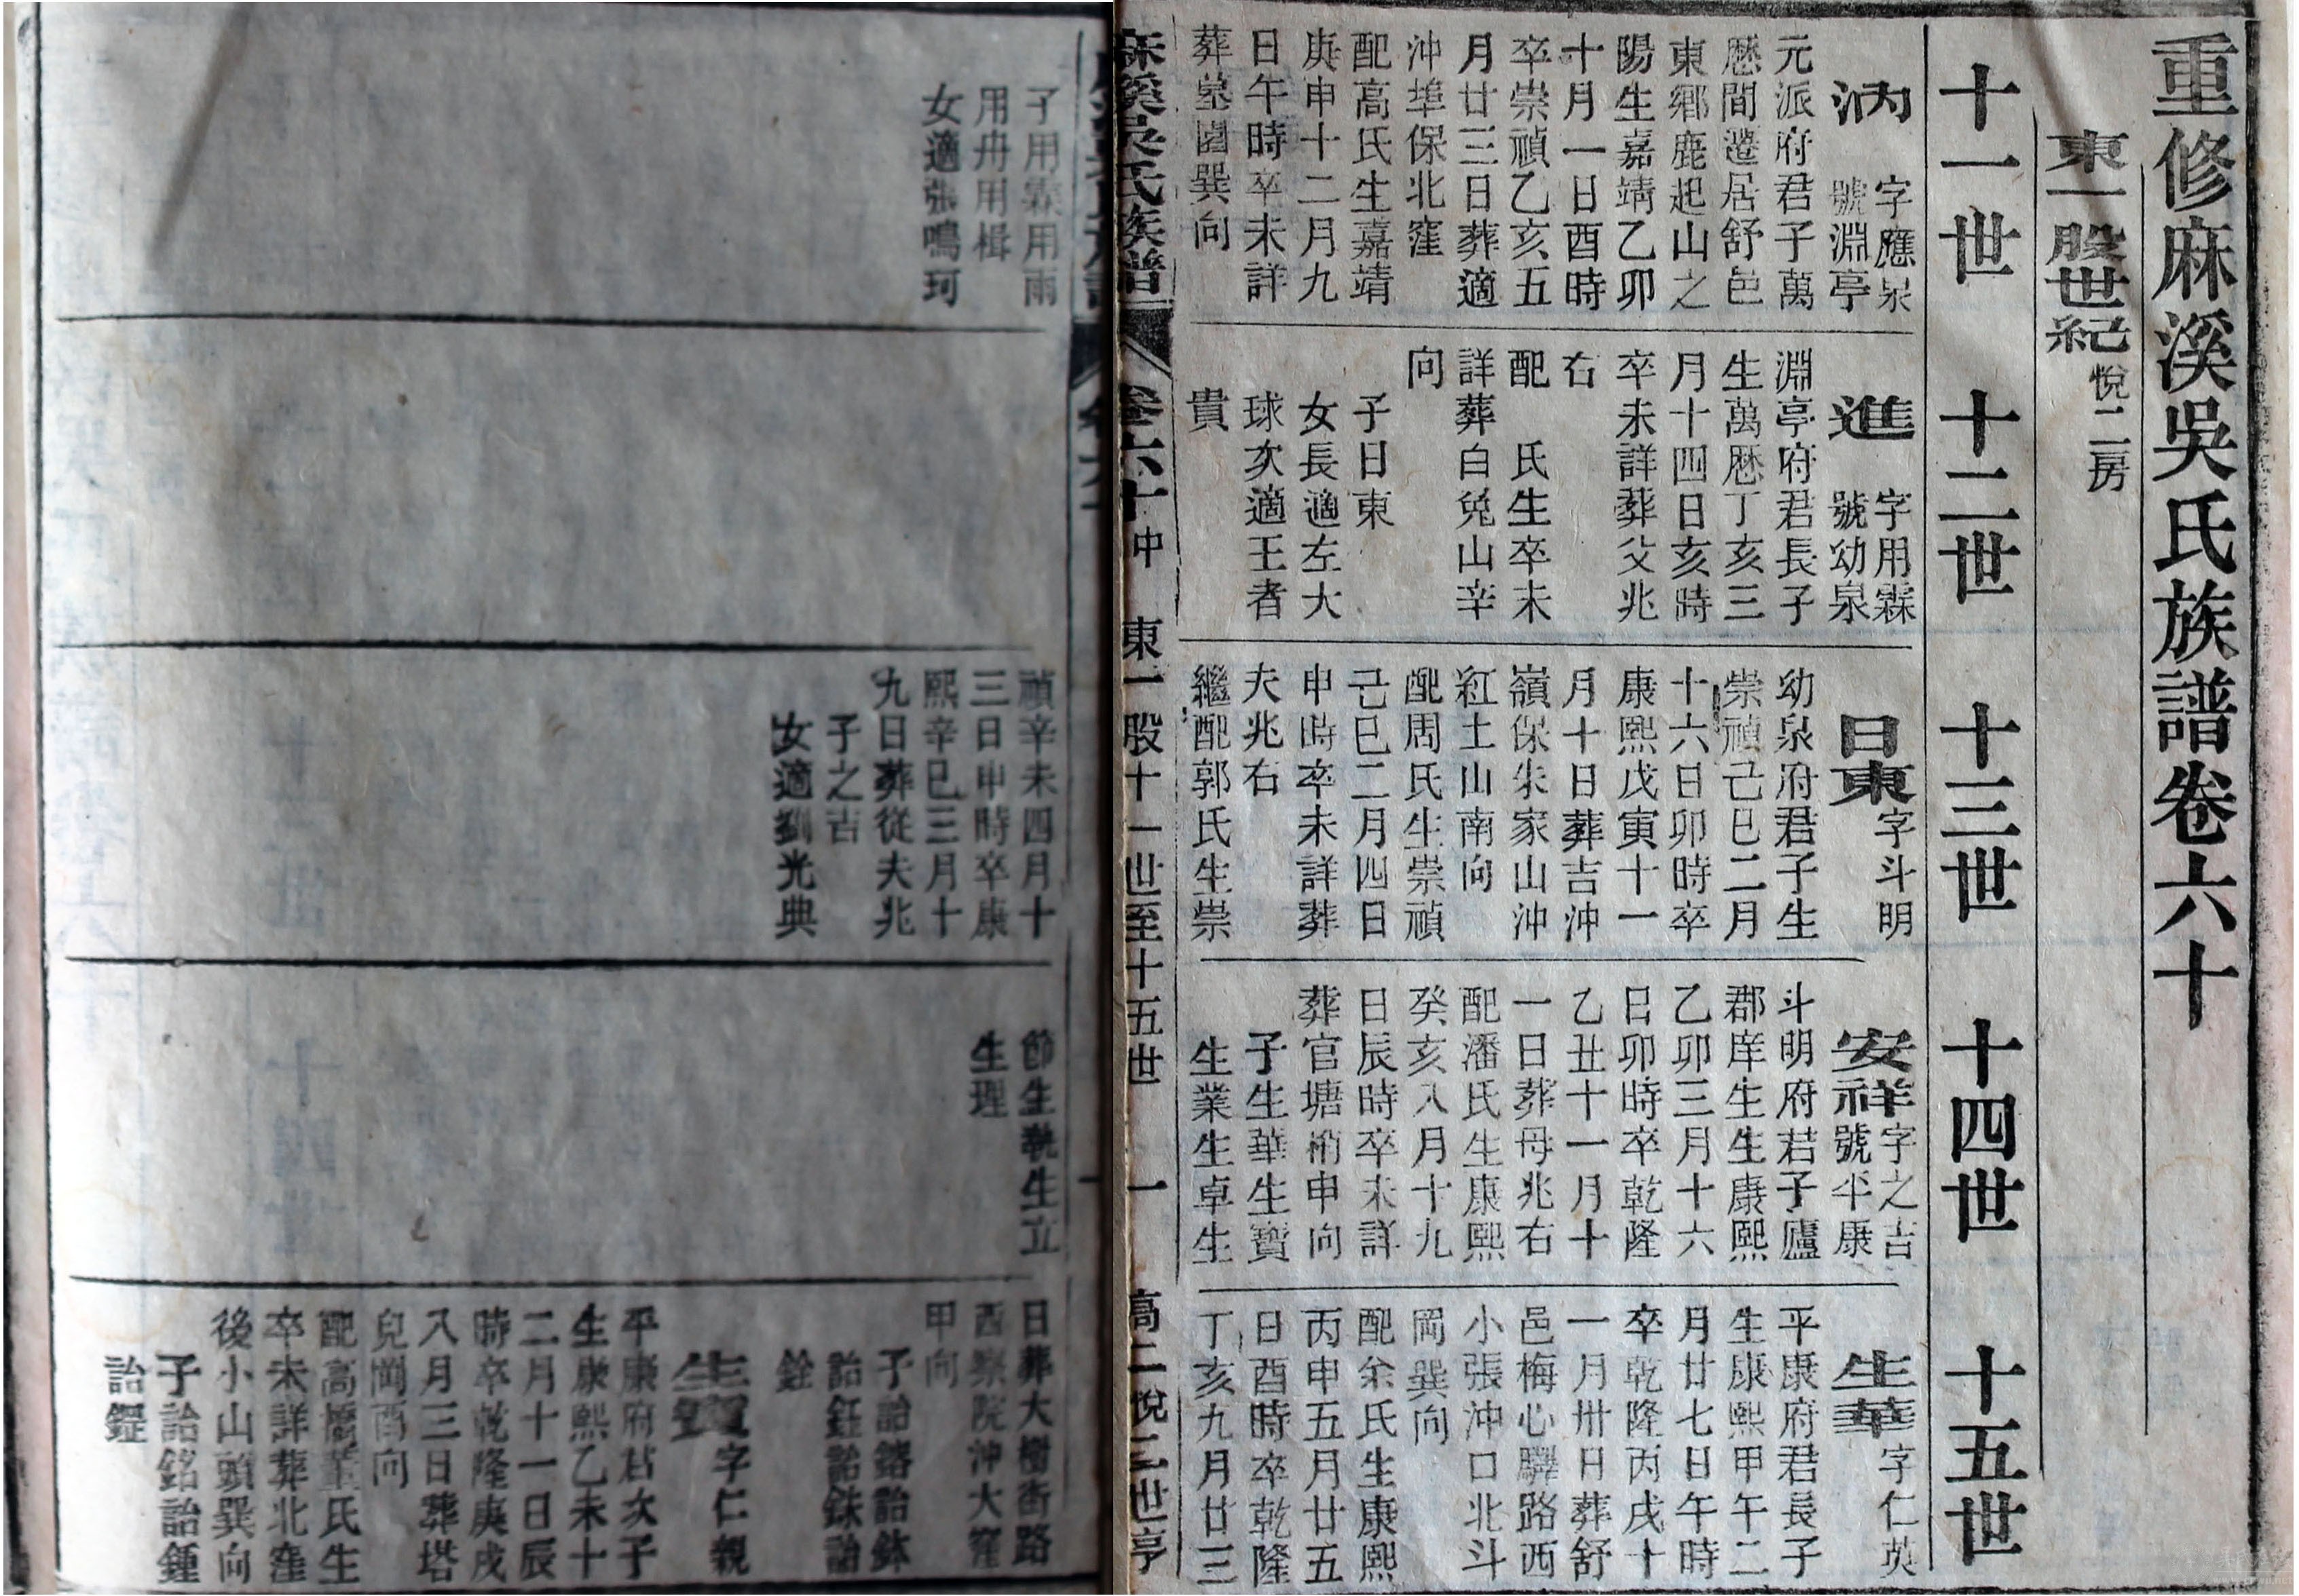 重修麻溪吳氏族譜卷六十
東一股世紀 悅二房
十一世
十二世
十三世
十四世
十五世
汭
字應泉
號淵亭
元派府君子萬
歷間遷居舒邑
東鄉鹿起山之
陽生嘉靖乙卯
十月一日酉時
卒崇禎乙亥五
月廿三日葬適
沖埠保北窪
配高氏生嘉靖
庚申十二月九
日午時卒未詳
葬墓園巽向
子用霖用雨
用舟用楫
女適張鳴珂
進
字用霖
號幼泉
淵亭府君長子
生萬歷丁亥三
月十四日亥時
卒未詳葬父兆
右
配 氏生卒未
詳葬白兔山辛
向
子日東
女長適左大
球次適王者
貴
日東
字斗明
幼泉府君子生
崇禎己巳二月
十六日卯時卒
康熙戊寅十一
月十日葬吉沖
嶺保朱家山沖
紅土山南向
配周氏生崇禎
己巳二月四日
申時卒未詳葬
夫兆右
繼配郭氏生崇
禎辛未四月十
三日申時卒康
熙辛巳三月十
九日葬從夫兆
子之吉
女適劉光典
安祥
字之吉
號平康
斗明府君子廬
郡庠生生康熙
乙卯三月十六
日卯時卒乾隆
乙丑十一月十
一日葬母兆右
配潘氏生康熙
癸亥八月十九
日辰時卒未詳
葬官塘梢申向
子生華生寶
生業生卓生
節生執生立
生理
生華
字仁英
平康府君長子
生康熙甲午二
月廿七日午時
卒乾隆丙戌十
一月卅日葬舒
邑梅心驛路西
小張沖口北斗
岡巽向
配余氏生康熙
丙申五月廿五
日酉時卒乾隆
丁亥九月廿三
日葬大樹街路
西察院沖大窪
甲向
子詒鏞詒鉢
詒鈺詒銖詒
銓
生寶
字仁親
平康府君次子
生康熙乙未十
二月十一日辰
時卒乾隆庚戌
八月三日葬塔
兒岡酉向
配高橋董氏生
卒未詳葬北窪
後小山頭巽向
子詒銘詒鍾
詒鏗
麻溪吳氏族譜
卷六十中
東一股十一世至十五世
一
高二悅二世亨